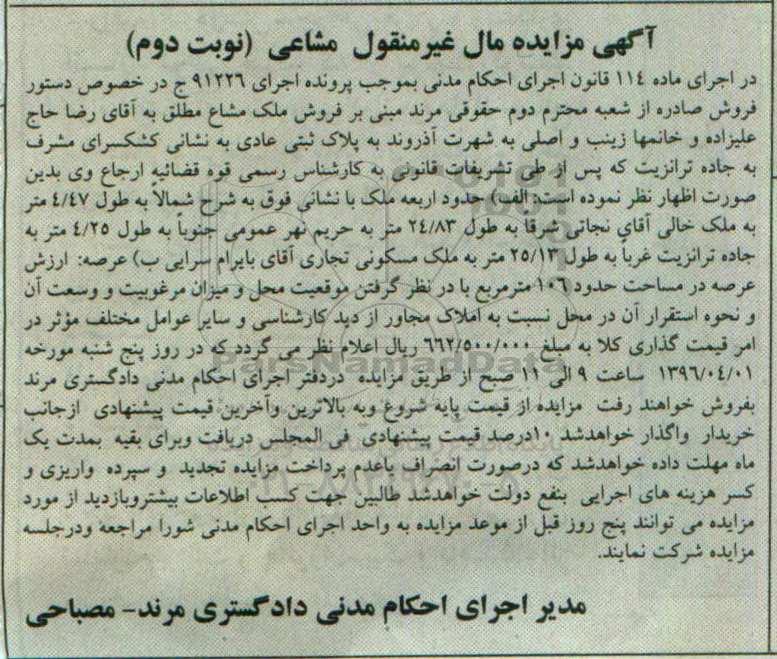 آگهی مزایده مال غیرمنقول مشاعی (نوبت دوم)
در اجرای ماده ۱۱٤ قانون اجرای احکام مدنی بموجب پرونده اجرای ۹۱۲۲٦ ج در خصوص دستور
فروش صادره از شعبه محترم دوم حقوقی مرند مبنی بر فروش ملک مشاع مطلق به آقای رضا حاج
علیزاده و خانمها زینب و اصلی به شهرت آذروند به پلاک ثبتی عادی به نشانی کشکسرای مشرف
به جاده ترانزیت که پس از طی تشریفات قانونی به کارشناس رسمی قوه قضائیه ارجاع وی بدین
صورت اظهار نظر نموده است: الف) حدود اربعه ملک با نشانی فوق به شرح شمالاً به طول ٤/٤۷ متر
به ملک خالی آقای نجاتی شرقا به طول ۲٤/۸۳ متر به حریم نهر عمومی جنوباً به طول ٤/۲٥ متر به
جاده ترانزیت غرباً به طول ۲٥/۱۳ متر به ملک مسکونی تجاری آقای بایرام سرایی ب) عرصه: ارزش
عرصه در مساحت حدود ۱۰٦ مترمربع با در نظر گرفتن موقعیت محل و میزان مرغوبیت و وسعت آن
و نحوه استقرار آن در محل نسبت به املاک مجاور از دید کارشناسی و سایر عوامل مختلف مؤثر در
امر قیمت گذاری کلا به مبلغ ٦٦۲/٥۰۰/۰۰۰ ریال اعلام نظر می گردد که در روز پنج شنبه مورخه
۱۳۹٦/۰٤/۰۱ ساعت ۹ الی ۱۱ صبح از طریق مزایده دردفتر اجرای احکام مدنی دادگستری مرند
بفروش خواهند رفت مزایده از قیمت پایه شروع وبه بالاترین وآخرین قیمت پیشنهادی ازجانب
خریدار واگذار خواهدشد ۱۰درصد قیمت پیشنهادی فی المجلس دریافت وبرای بقیه بمدت یک
ماه مهلت داده خواهدشد که درصورت انصراف یاعدم پرداخت مزایده تجدید و سپرده واریزی و
کسر هزینه های اجرایی بنفع دولت خواهدشد طالبین جهت کسب اطلاعات بیشتروبازدید از مورد
مزایده می توانند پنج روز قبل از موعد مزایده به واحد اجرای احکام مدنی شورا مراجعه ودرجلسه
مزایده شرکت نمایند.
مدیر اجرای احکام مدنی دادگستری مرند- مصباحی
ParsNamadData